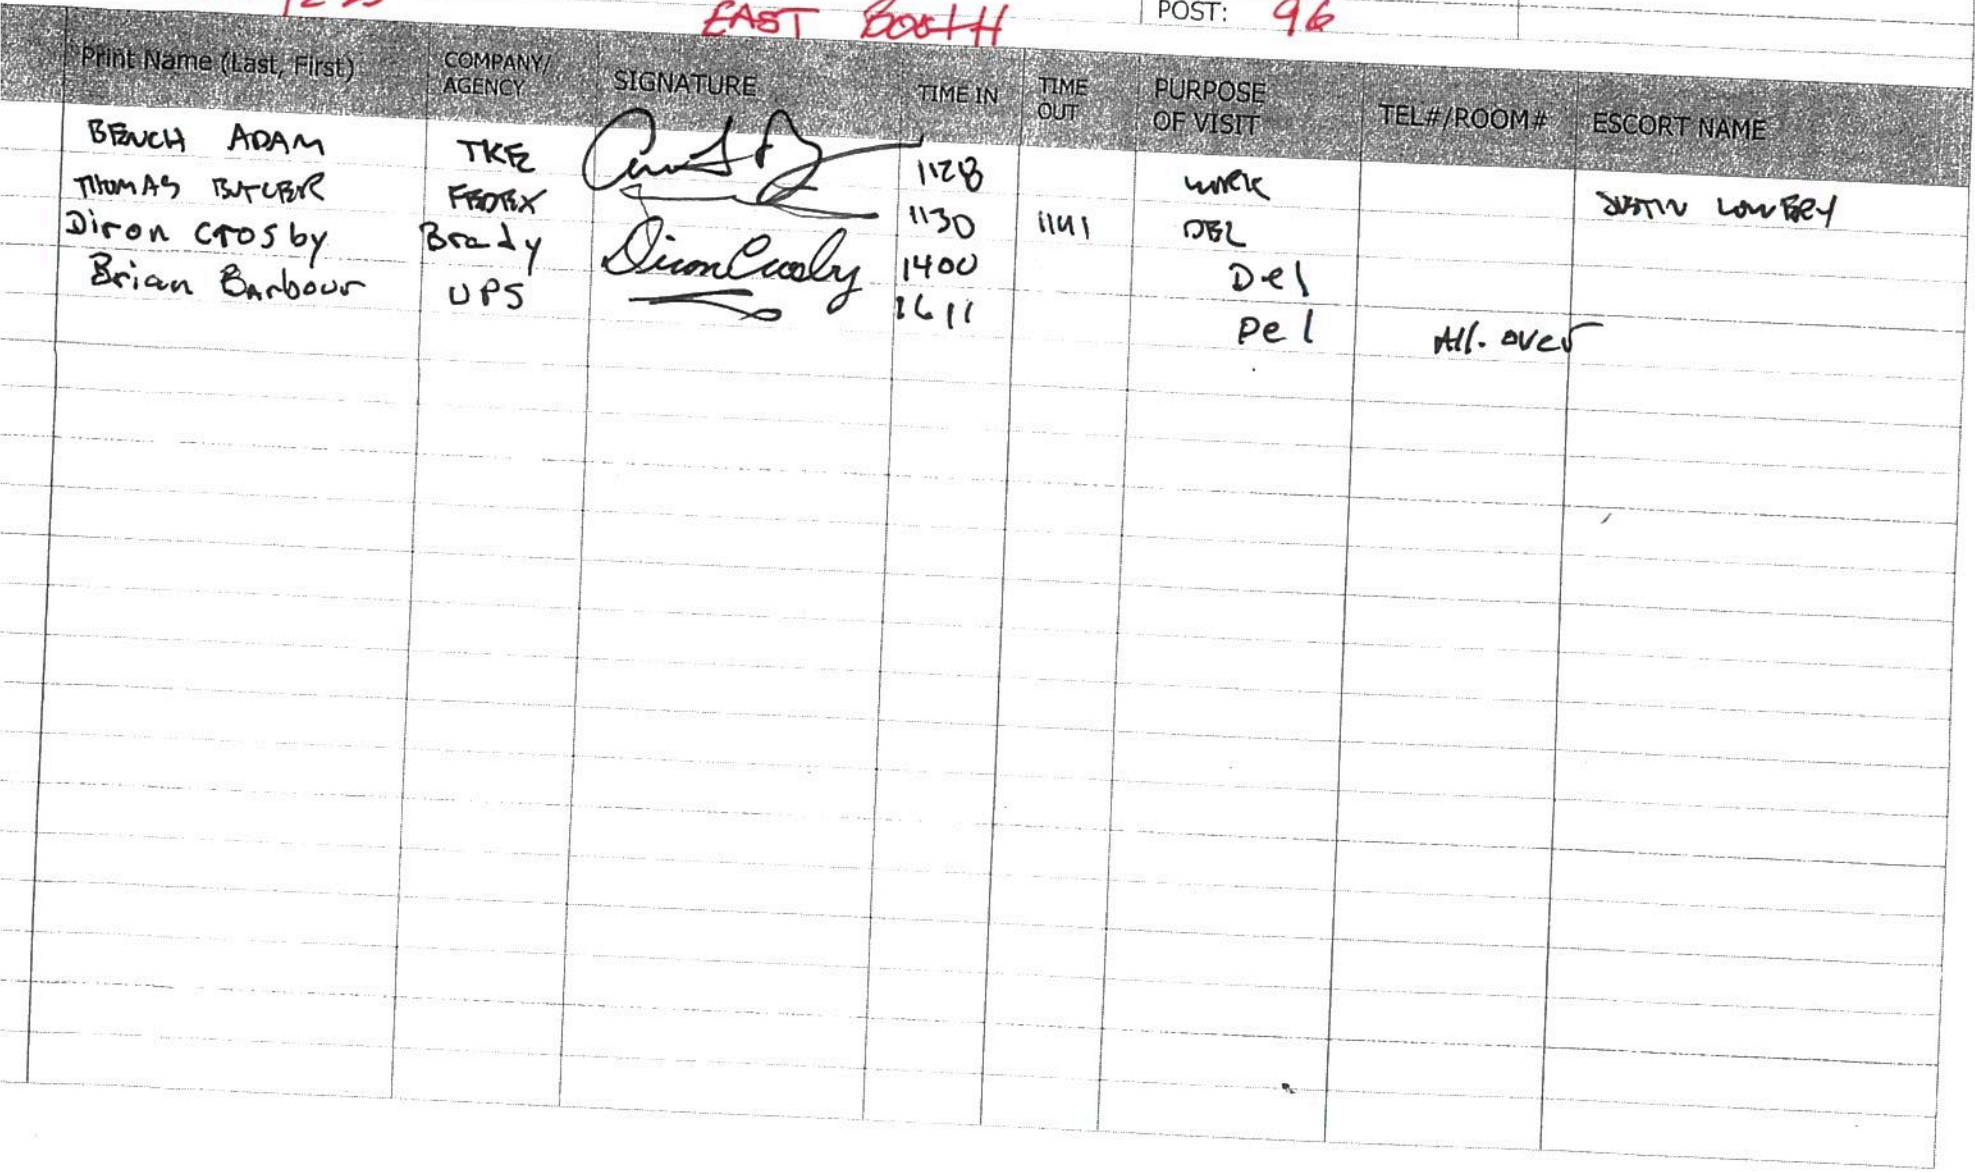 EAST BOOTH POST: 96
Print Name (Last, First) COMPANY/ AGENCY SIGNATURE TIME IN TIME OUT PURPOSE OF VISIT TEL#/ROOM# ESCORT NAME
BENCH ADAM TKE 1128 WORK JUSTIN LOWBEY
THOMAS BUTLER FEDEX 1130 1141 DEL
Diron Crosby Brady Diron Crosby 1400 Del
Brian Barbour UPS 1611 Del All. over